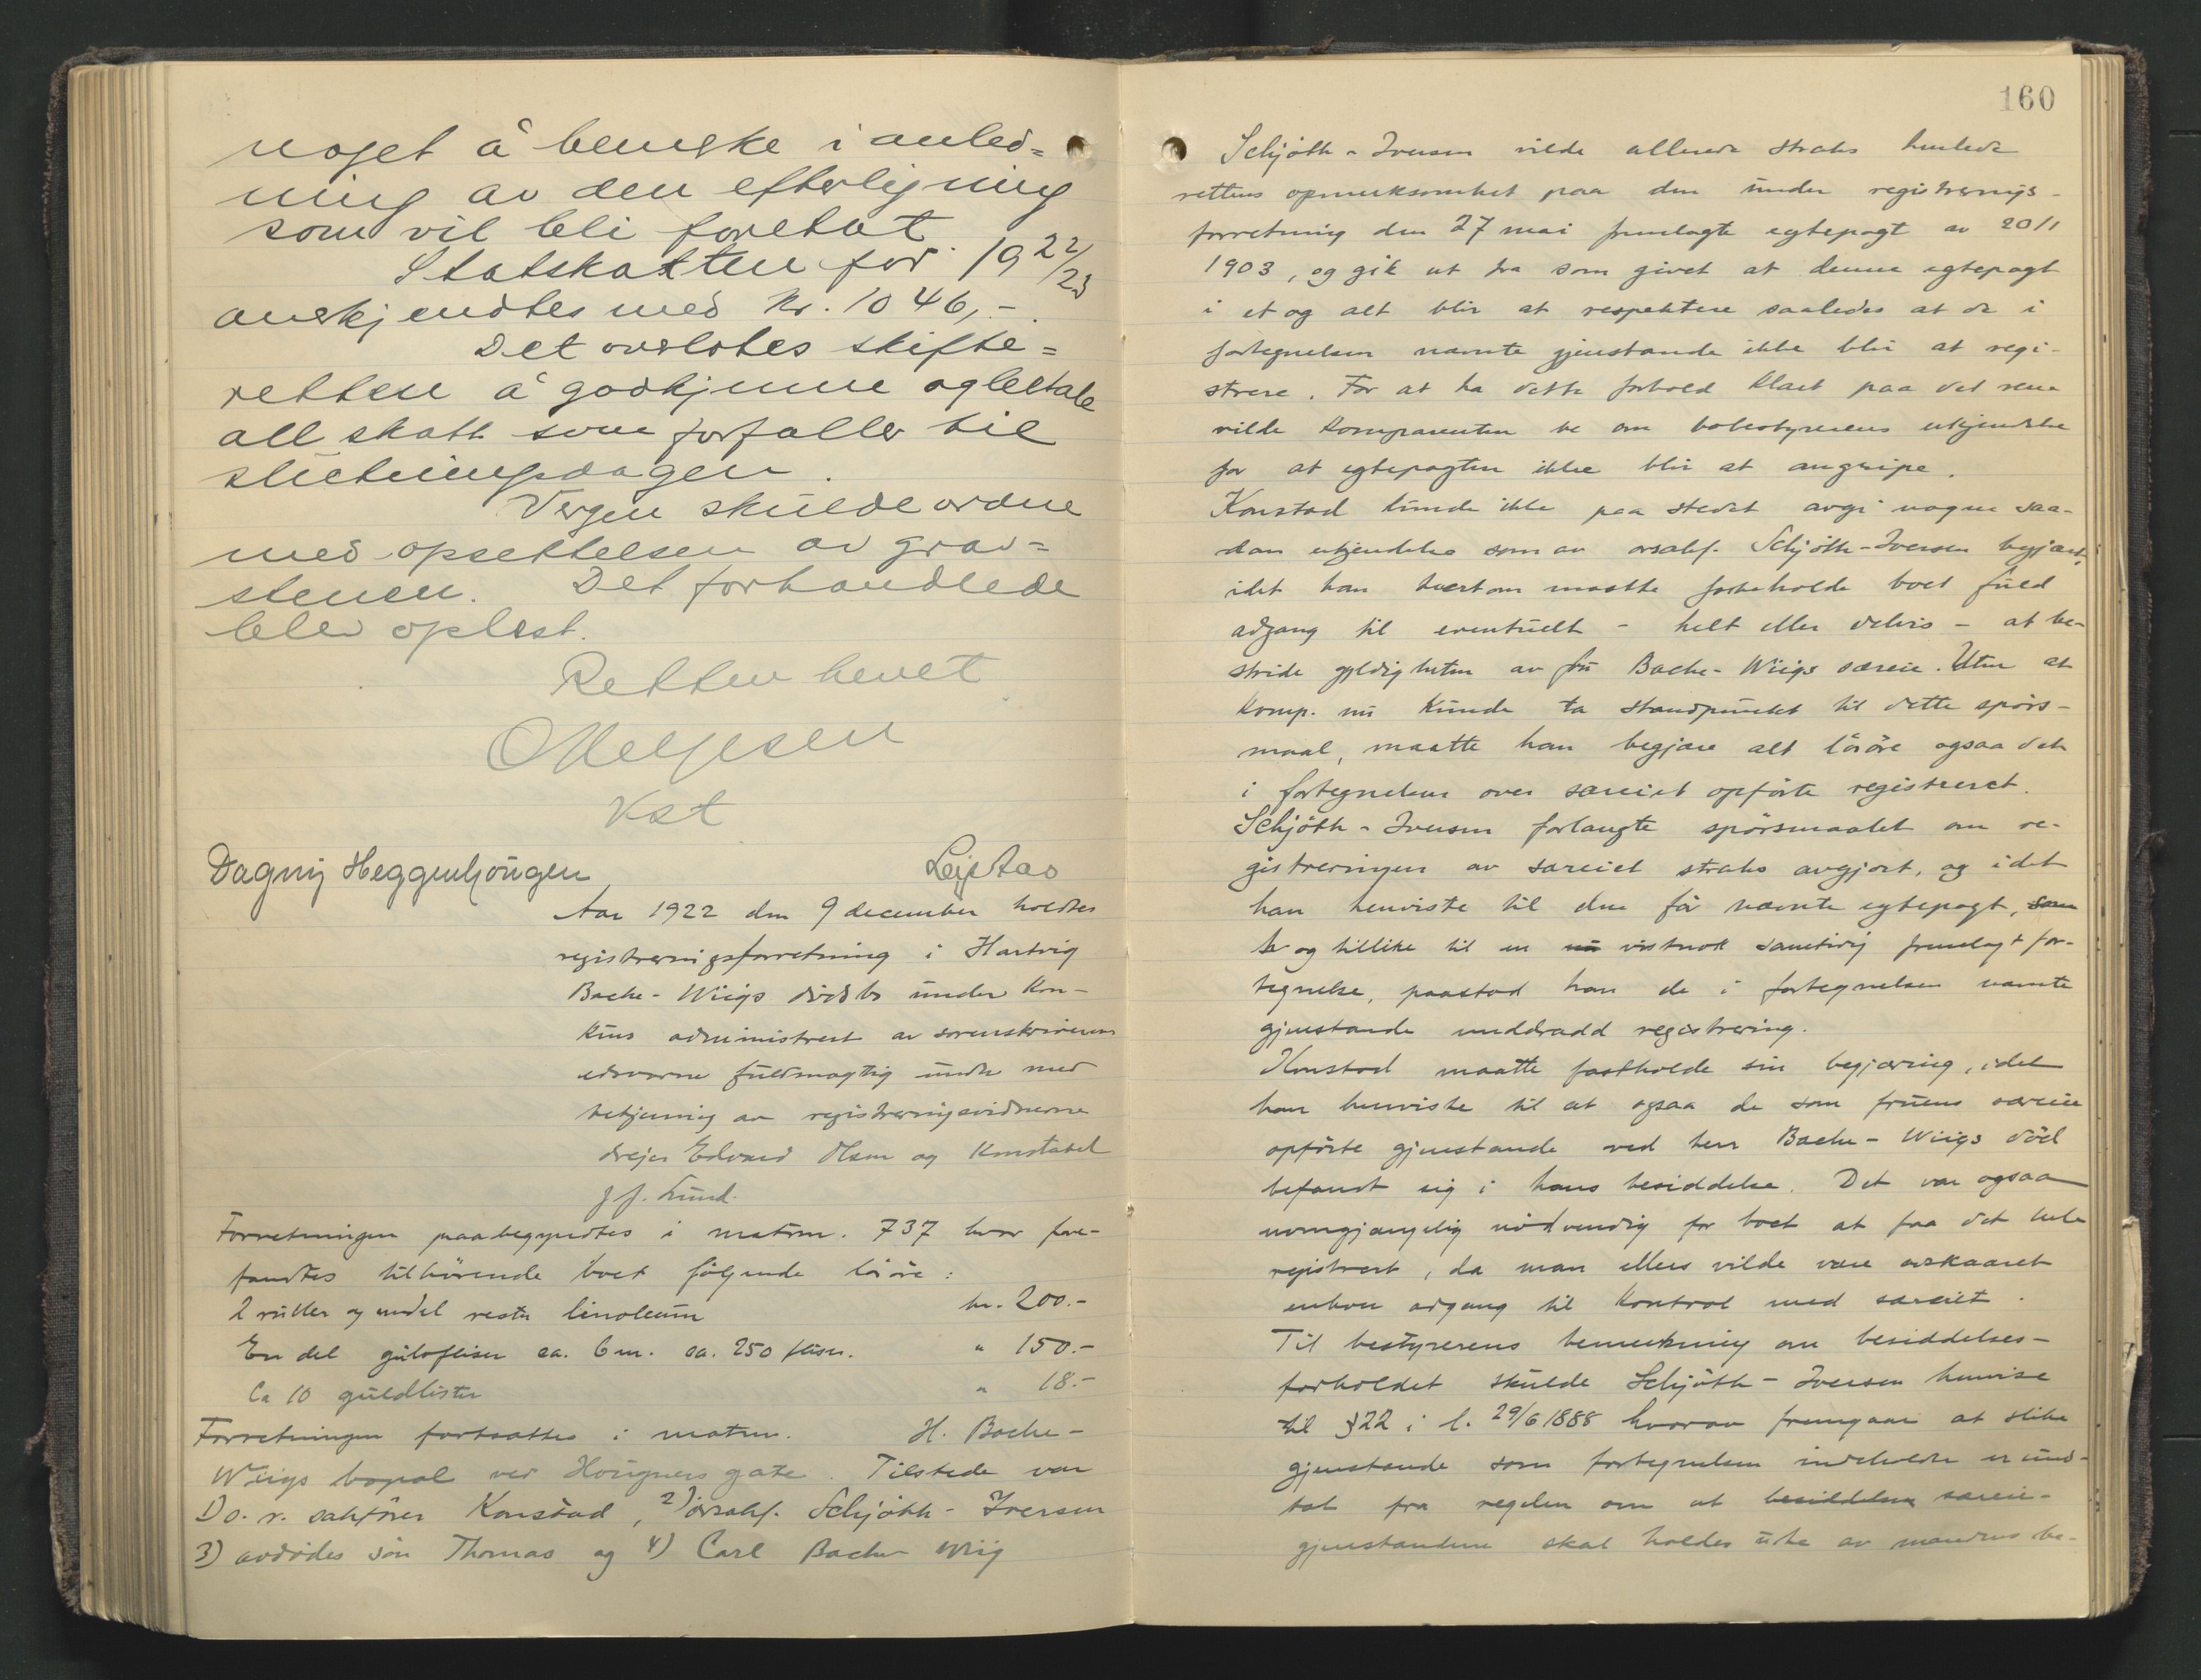 noget å bemerke i anled=
ning av den efterligning
som vil bli foretat.
Statskatten for 1922/23
anerkjendtes med kr. 1046,-.
Det overlotes skifte=
retten å godkjenne og betale
all skatt som forfaller til
slutningsdagen.
Vergen skulde ordne
med opsettelsen av grav=
stenen. Det forhandlede
blev oplest.
Retten hevet
O Helgesen
Kst
Dagny Heggenhougen
Leif Aas
Aar 1922 den 9 december holdtes
registreringsforretning i Hartvig
Bache-Wiigs dødsbo under kon-
kurs administrert av sorenskriverens
edsvorne fuldmægtig under med
betjening av registreringsvidnerne
dreier Edvard Olsen og konstabel
J. J. Lund.
Forretningen paabegyndtes i matrnr. 737 hvor fore-
fandtes tilhörende boet fölgende lösöre:
2 ruller og endel rester linoleum kr. 200.-
En del gulvfliser ca. 6 m. ca. 250 fliser. " 150.-
Ca 10 guldlister " 18.-
Forretningen fortsattes i matrnr. H. Bache-
Wiigs bopæl ved Hougners gate. Tilstede var
1) o.r. sakförer Konstad, 2) orsakf. Schjöth-Iversen
3) avdödes sön Thomas og 4) Carl Bache Wiig
160
Schjöth-Iversen vilde allerede straks henlede
rettens opmerksomhet paa den under registrerings-
forretning den 27 mai fremlagte egtepagt av 20/1
1903, og gik ut fra som givet at denne egtepagt
i et og alt blir at respektere saaledes at de i
fortegnelsen nævnte gjenstande ikke blir at regi-
strere. For at ha dette forhold klart paa det rene
vilde komparenten be om bobestyrerens erkjendelse
for at egtepagten ikke blir at angripe.
Konstad kunde ikke paa stedet avgi nogen saa-
dan erkjendelse som av orsakf. Schjöth-Iversen begjært,
idet han tvertom maatte forbeholde boet fuld
adgang til eventuelt - helt eller delvis - at be-
stride gyldigheten av fru Bache-Wiigs særeie. Uten at
komp. nu kunde ta standpunkt til dette spörs-
maal, maatte han begjære alt lösöre ogsaa det
i fortegnelsen over særeiet opförte registreret.
Schjöth-Iversen forlangte spörsmaalet om re-
gistreringen av særeiet straks avgjort, og idet
han henviste til den för nævnte egtepagt, som
og tillike til en nu vistnok samtidig fremlagt for-
tegnelse, paastod han de i fortegnelsen nævnte
gjenstande unddradd registrering.
Konstad maatte fastholde sin begjæring, idet
han henviste til at ogsaa de som fruens særeie
opförte gjenstande ved herr Bache-Wiigs död
befandt sig i hans besiddelse. Det var ogsaa
uomgjængelig nödvendig for boet at faa det hele
registrert, da man ellers vilde være avskaaret
enhver adgang til kontrol med særeiet.
Til bestyrerens bemerkning om besiddelses-
forholdet skulde Schjöth-Iversen henvise
til § 22 i l. 29/6 1888 hvorav fremgaar at slike
gjenstande som fortegnelsen indeholder er und-
tat fra regelen om at besiddelsen særeie-
gjenstandene skal holdes ute av mandens be-